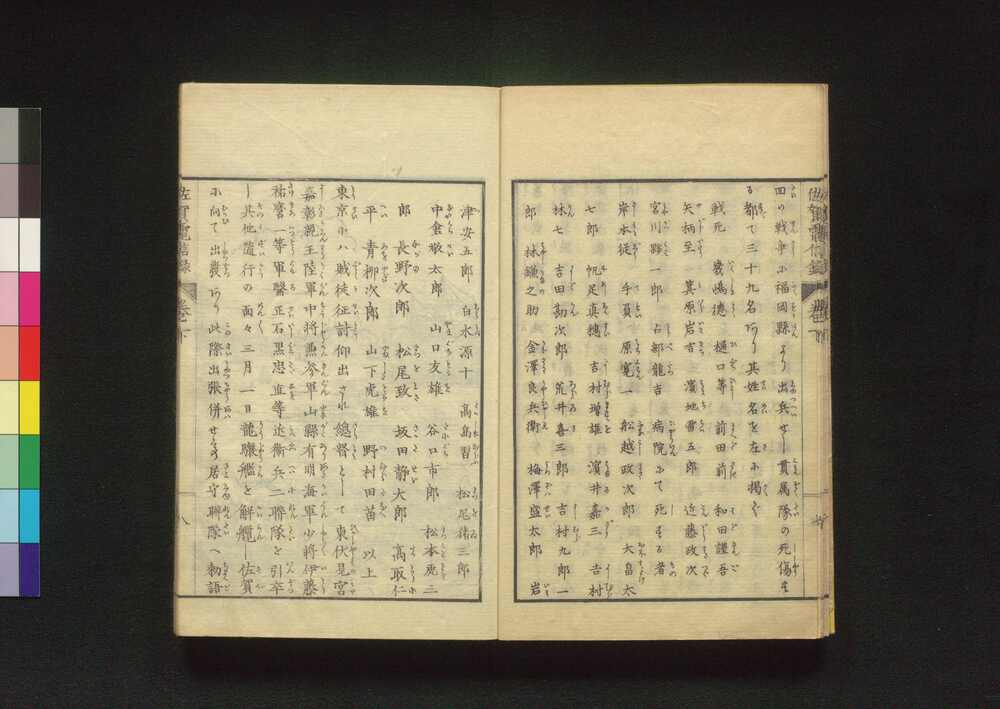 佐賀電信録 巻下
四の戦争に福岡縣より出兵せし貫属隊の死傷す
る都て三十九名あり其姓名を左に掲ぐ
戦死 幾嶋德 樋口等 前田前 和田謹吾
矢柄至 箕原岩吉 濱地雷五郎 近藤政次
宮川 一郎 占部龍吉 病院にて死する者
岸本徒 手負 原寛一 船越政次郎 大畠太
七郎 帆足真穗 吉村增雄 濱井嘉三 吉村
林七 吉田勘次郎 荒井喜三郎 吉村九郎一
郎 林鎌之助 金澤良兵衛 梅澤盛太郎 岩
津安五郎 白水源十 髙島習一 松尾猪三郎
中倉敬太郎 山口友雄 谷口市郎 松本虎三
郎 長野次郎 松尾致 坂田静大郎 髙取仁
平 青栁次郎 山下虎雄 野村田苗 以上
東京にハ賊徒征討仰出され總督として東伏見宮
嘉彰親王陸軍中将兼参軍山縣有朋海軍少将伊藤
祐麿一等軍醫正石黒忠直等近衛兵二聯隊を引卒
し其他隨行の面々三月一日龍驤艦を解纜し佐賀
に向て出發あり此際出張併せ 居守聯隊へ勅語
佐賀電信録 巻下 八